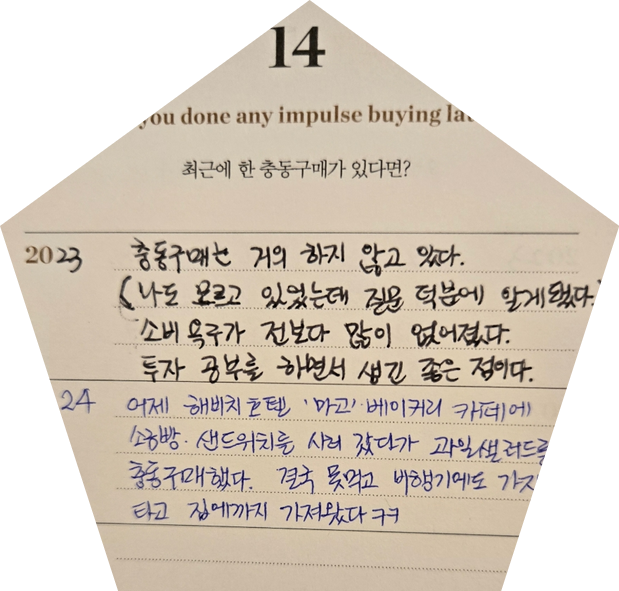 14
you done any impulse buying
최근에 한 충동구매가 있다면?
2023 충동구매는 거의 하지 않고 있다.
(나도 모르고 있었는데 질문 덕분에 알게됐다.
소비 욕구가 전보다 많이 없어졌다.
투자 공부를 하면서 생긴 좋은 점이다.
24 어제 해비치호텔 '마고' 베이커리 카페에
샌드위치를 사러 갔다가 과일샐러드를
충동구매했다. 결국 못먹고 비행기에도
타고 집에까지 가져왔다 ㅋㅋ